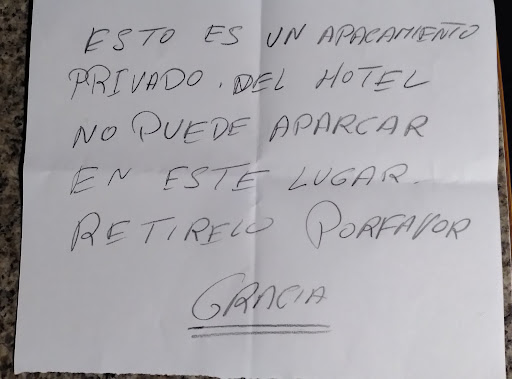 ESTO ES UN APACAMIENTO
PRIVADO. DEL HOTEL
NO PUEDE APARCAR
EN ESTE LUGAR.
RETIRELO PORFAVOR
GRACIA